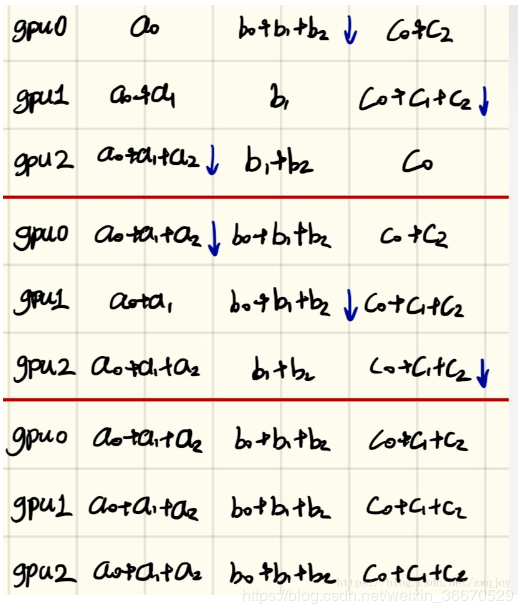 gpu0 a₀ b₀+b₁+b₂ ↓ c₀+c₂
gpu1 a₀+a₁ b₁ c₀+c₁+c₂ ↓
gpu2 a₀+a₁+a₂ ↓ b₁+b₂ c₀
gpu0 a₀+a₁+a₂ ↓ b₀+b₁+b₂ c₀+c₂
gpu1 a₀+a₁ b₀+b₁+b₂ ↓ c₀+c₁+c₂
gpu2 a₀+a₁+a₂ b₁+b₂ c₀+c₁+c₂ ↓
gpu0 a₀+a₁+a₂ b₀+b₁+b₂ c₀+c₁+c₂
gpu1 a₀+a₁+a₂ b₀+b₁+b₂ c₀+c₁+c₂
gpu2 a₀+a₁+a₂ b₀+b₁+b₂ c₀+c₁+c₂
https://blog.csdn.net/zwq_joy
https://blog.csdn.net/weixin_36670529